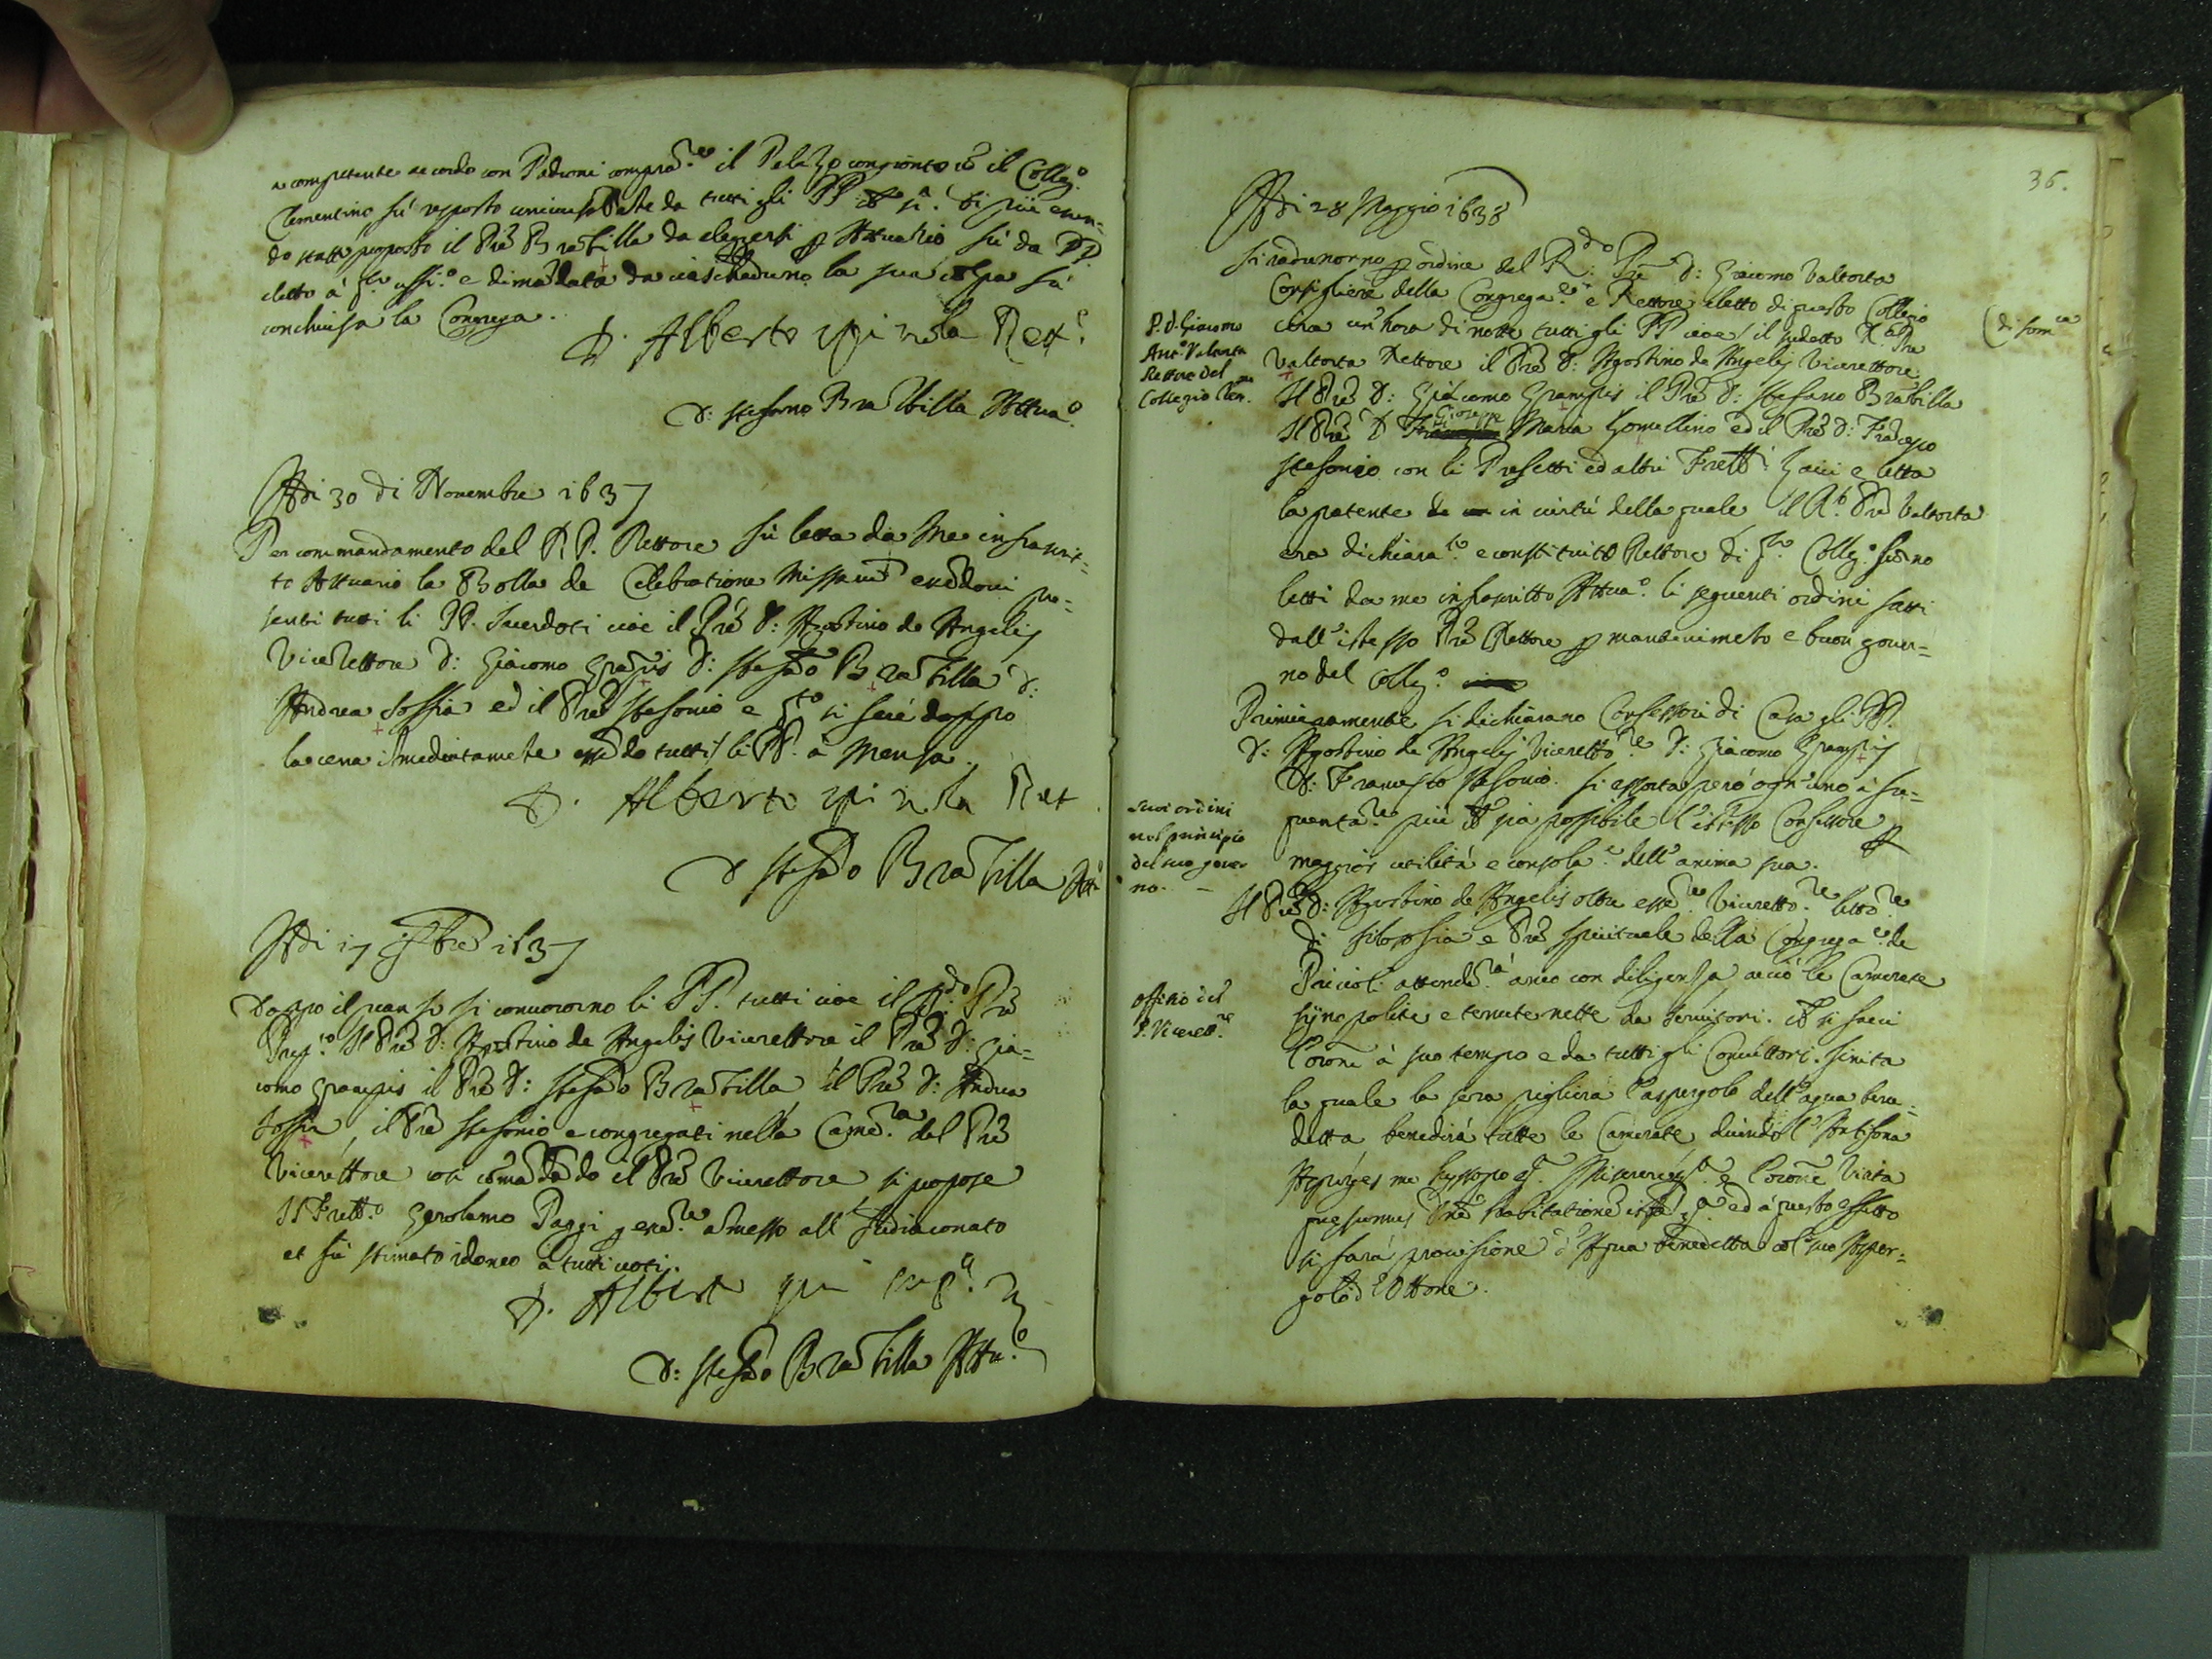 a competente accordo con Padroni comprar.e il Palazo congionto cō il Colleg.o
Clementino fù risposto universalmẽte da tutti gli PP chē si. Di più essen-
do stato proposto il Prē Brābilla da elegersi ꝑ Attuario fù da PP
eletto à q.to uffi.o e dimādata da ciascheduno la sua colpa fù
conchiusa la Congrega.
D. Alberto Spinola Rett.e
D: Stefano Brābilla Attua.o
Adi 30 di Novembre 1637
Per commandamento del R P. Rettore fù letta da me infrascrit-
to Attuario la Bolla de Celebratione Missarū essēdoni pre-
senti tutti li PP. Sacerdoti cioè il Prē D: Agostino de Angelis
Vicerettore D: Giacomo Grāpis D: Stefāo Brābilla D:
Andrea Sossia ed il Prē Stefonio e q.to si fece doppo
la cena immediatamēte essēdo tutti li PP. à Mensa.
D. Alberto Spinola Rett
D Stefāo Brābilla Att.o
Adi 17 Xbre 1637
Doppo il pranso si convocorno li PP. tutti cioè il R.do Prē
Prep.o Il Prē D: Agostino de Angelis Vicerettore il Prē D: Gia-
como Grampis il Prē D: Stefāo Brābilla il Prē D: Andrea
Sossia, il Prē Stefonio e congregati nella Came.ra del Prē
Vicerettore così comādādo il Prē Vicerettore si propose
Il Fratt.o Gerolamo Paggi ꝑ esse.re amesso all Sudiaconato
et fù stimato idoneo à tutti voti.
D. Alberto Spi
D: Stefāo Brābilla Attu.o
36.
Adi 28 Maggio 1638
Si radunorno ꝑ ordine del R.do Prē D: Giacomo Valtorta
Consigliere della Congrega.e e Rettore eletto di questo Collegio
(di Som.ca
circa un'hora di notte tutti gli PP cioè il sudetto R.do Prē
P. d. Giacomo
Ant.o Valtorta
Rettore del
Collegio Clem.
Valtorta Rettore il Prē D: Agostino de Angelis Vicerettore
Il Prē D: Giacomo Grampis il Prē D: Stefano Brābilla
Il Prē D Gioseppe Maria Gomellino ed il Prē D: Frācesco
Stefonio con li Prefetti ed altri Fratt.i Laici e letta
la patente in virtù della quale il R.do Prē Valtorta
era dichiara.to e constituito Rettore di q.to Colleg.o furno
letti da me infrascritto Attua.o li seguenti ordini fatti
dall'istesso Prē Rettore ꝑ mantenimēto e buon gover-
no del Colleg.o
Primieramente si dichiarano Confessori di Casa gli PP.
D: Agostino de Angelis Viceretto.re D: Giacomo Grampis
D: Francesco Stefonio. Si essorta però ogn'uno à fre-
quenta.re più chē sia possibile l'istesso Confessore ꝑ
maggior utilità e consola.e dell'anima sua.
suoi ordini
nel principio
del suo gover
no. -
Il Prē D: Agostino de Angelis oltre esse.re Viceretto.re letto.re
di filosofia e Prē spirituale della Congrega.e de
Piccioli attende.rà anco con diligenza acciò le Camerate
sijno polite e tenute nette da servitori. chē si facci
l'orōne à suo tempo e da tutti gli Convittori. finita
offitio del
P. Vicerett.re
la quale la sera piglierà l'aspergolo dell'aqua bene-
detta benedirà tutte le Camerate dicēdo l'Antifona
Asperges me hyssopo et Miserere et e l'orōne Visita
quesumus Dnē habitationē istā et ed à questo effetto
si farà provisione d'Aqua benedetta col suo Asper-
golo d'Ottone.